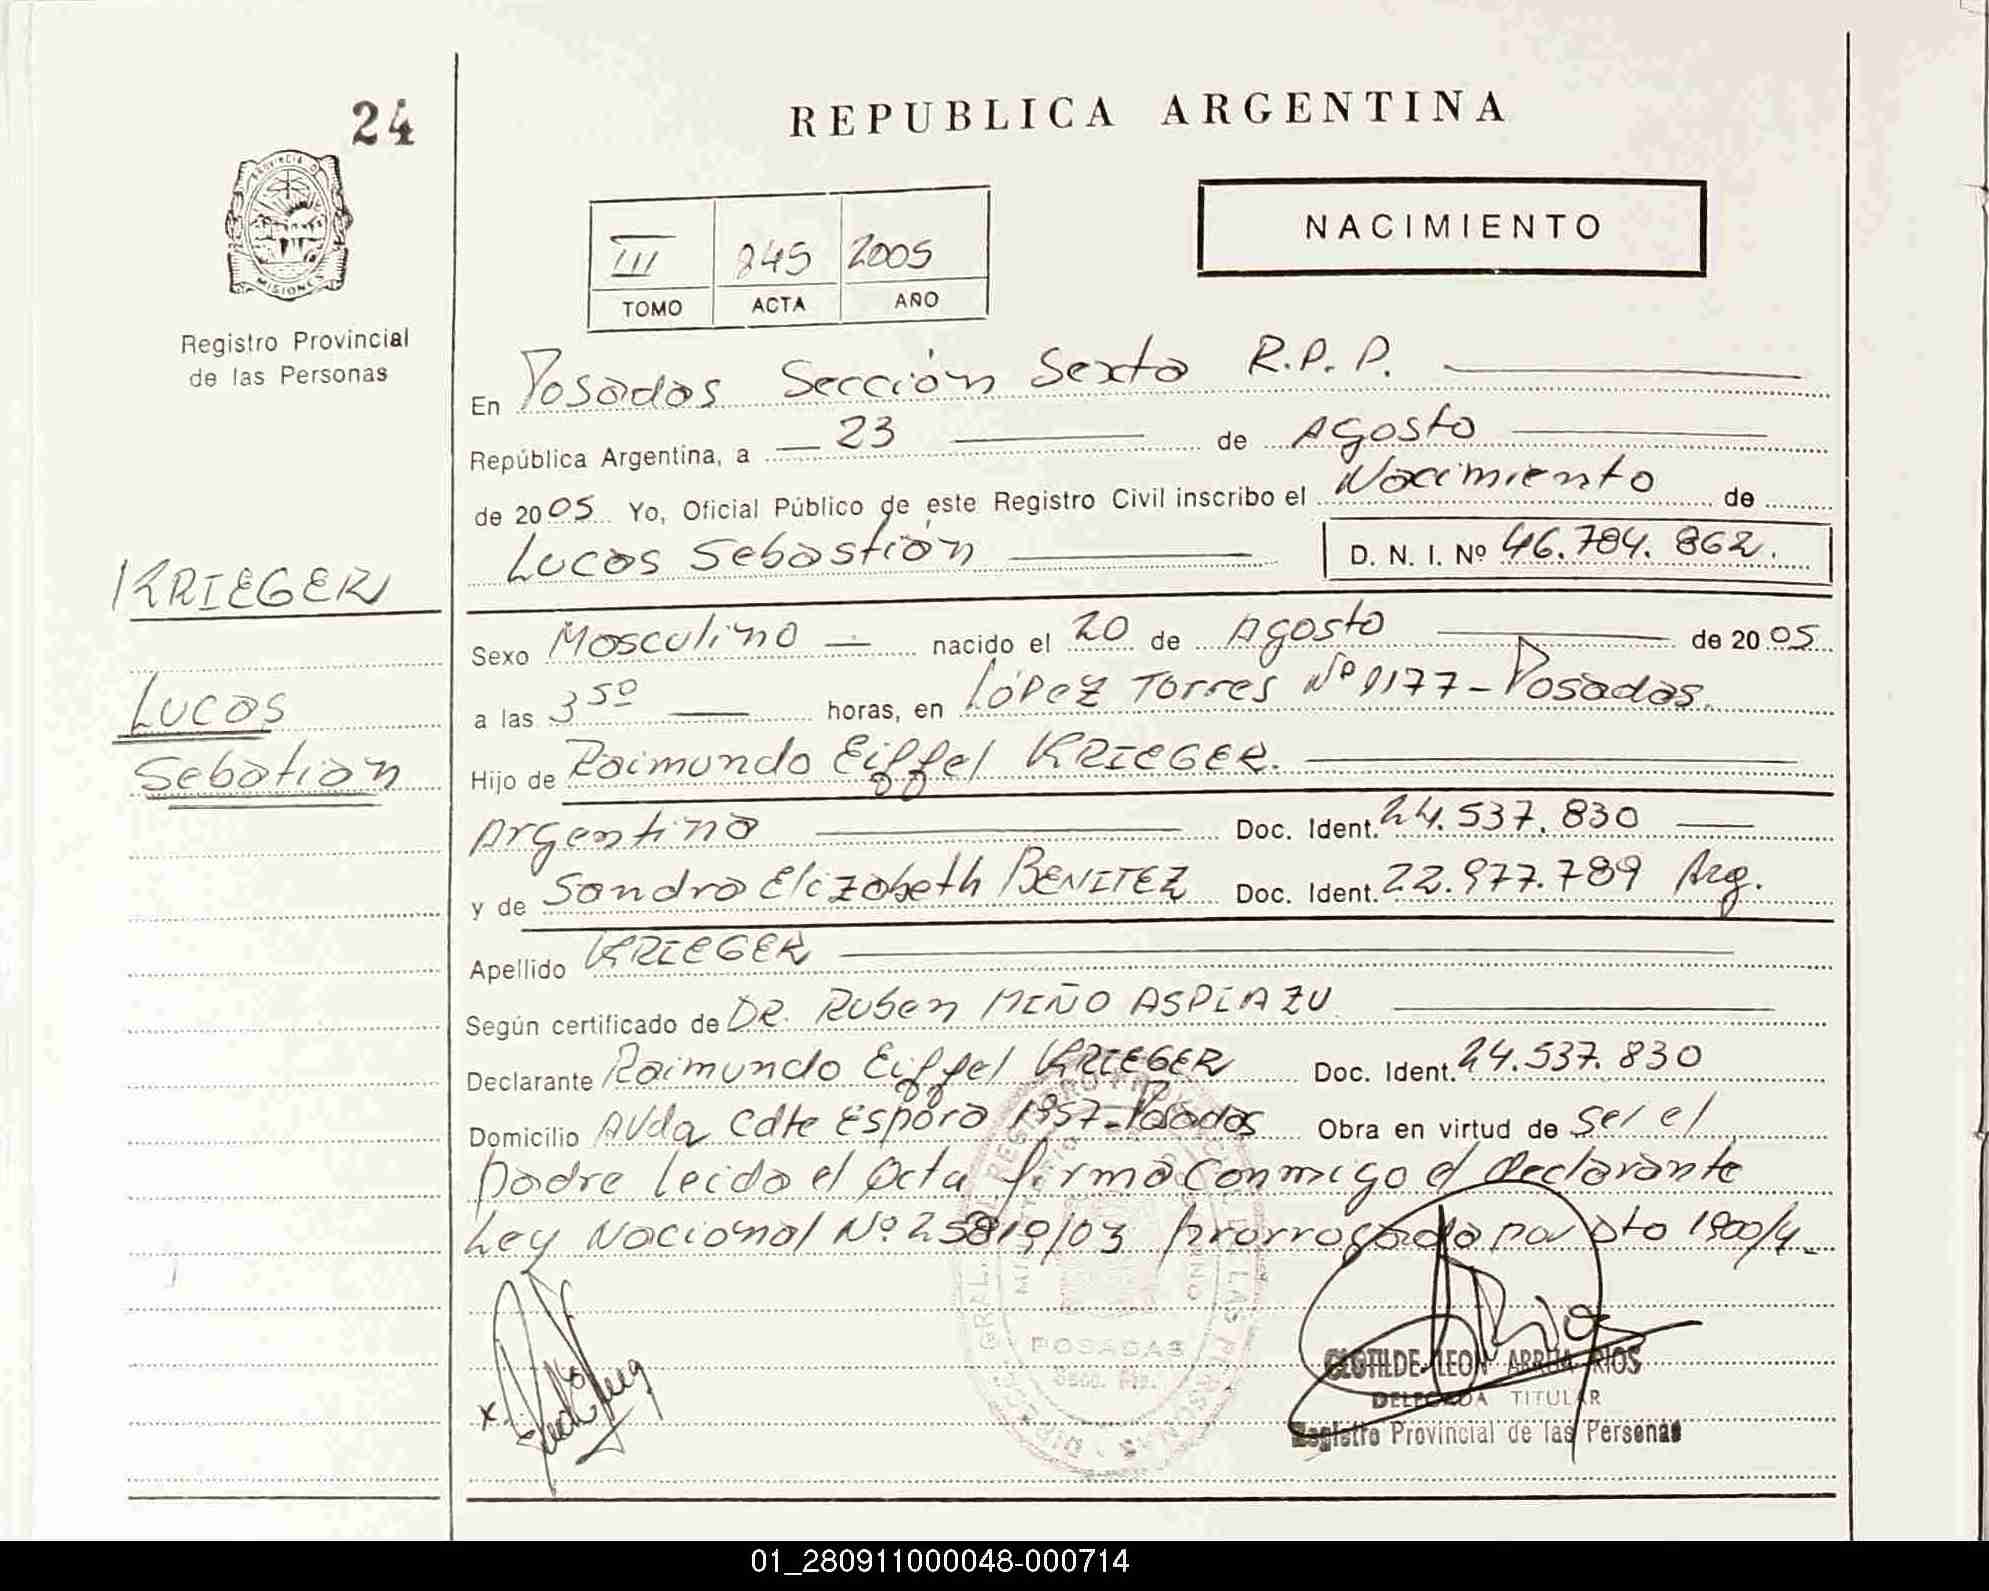 24
REPUBLICA ARGENTINA
PROVINCIA D
MISIONES
Registro Provincial
de las Personas
NACIMIENTO
III 245 2005
TOMO ACTA AÑO
En Posadas Sección Sexta R.P.P.
República Argentina, a 23 de Agosto
de 2005 Yo, Oficial Público de este Registro Civil inscribo el Nacimiento de
Lucas Sebastián D. N. I. Nº 46.784.862.
KRIEGER
Lucas
Sebatian
Sexo Masculino nacido el 20 de Agosto de 2005
a las 3 50 horas, en López Torres Nº 1177 - Posadas.
Hijo de Raimundo Eiffel KRIEGER.
Argentino Doc. Ident. 24.537.830
y de Sandra Elizabeth BENITEZ Doc. Ident. 22.977.789 Arg.
Apellido KRIEGER
Según certificado de DR. Ruben MIÑO ASPIAZU
Declarante Raimundo Eiffel KRIEGER Doc. Ident. 24.537.830
Domicilio AVda Cdte Espora 1957-Posadas Obra en virtud de ser el
padre leida el acta firma conmigo el declarante
Ley Nacional Nº 25819/03 prorrogada por Dto 1900/4
POSADAS
CLOTILDE LEON ARRUA RIOS
DELEGADA TITULAR
Registro Provincial de las Personas
01_280911000048-000714